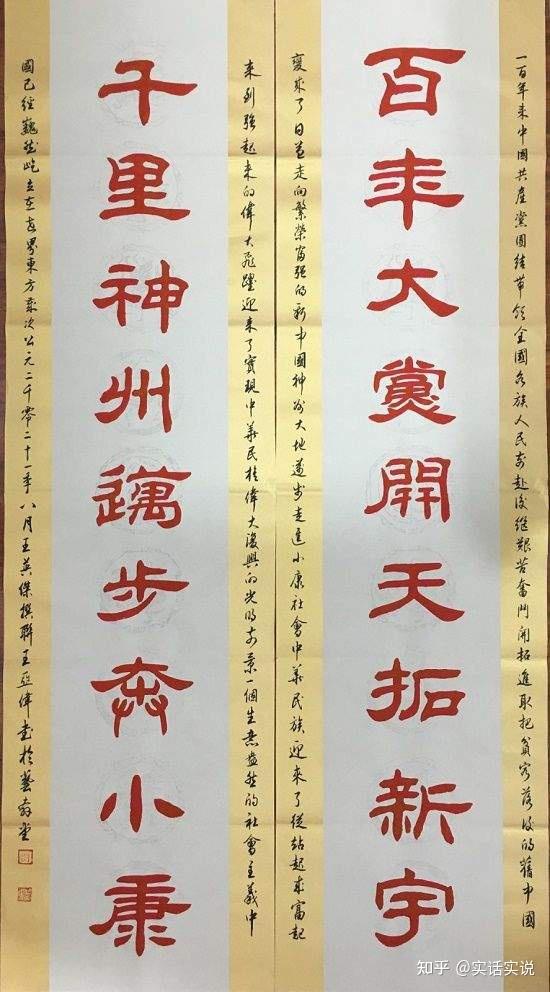 一百年来中國共産黨團结带领全國各族人民前赴後继艱苦奮鬥開拓進取把貧窮落後的舊中國
百年大黨開天拓新宇
變成了日益走向繁榮富强的新中國神州大地邁步走進小康社會中華民族迎來了從站起来富起
来到强起来的偉大飛躍迎来了實現中華民族偉大復興的光明前景一個生意盎然的社會主義中
千里神州邁步奔小康
國已經巍然屹立在世界東方歲次公元二千零二十一年八月王英傑撰聯王延偉書於藝堂
知乎 @实话实说